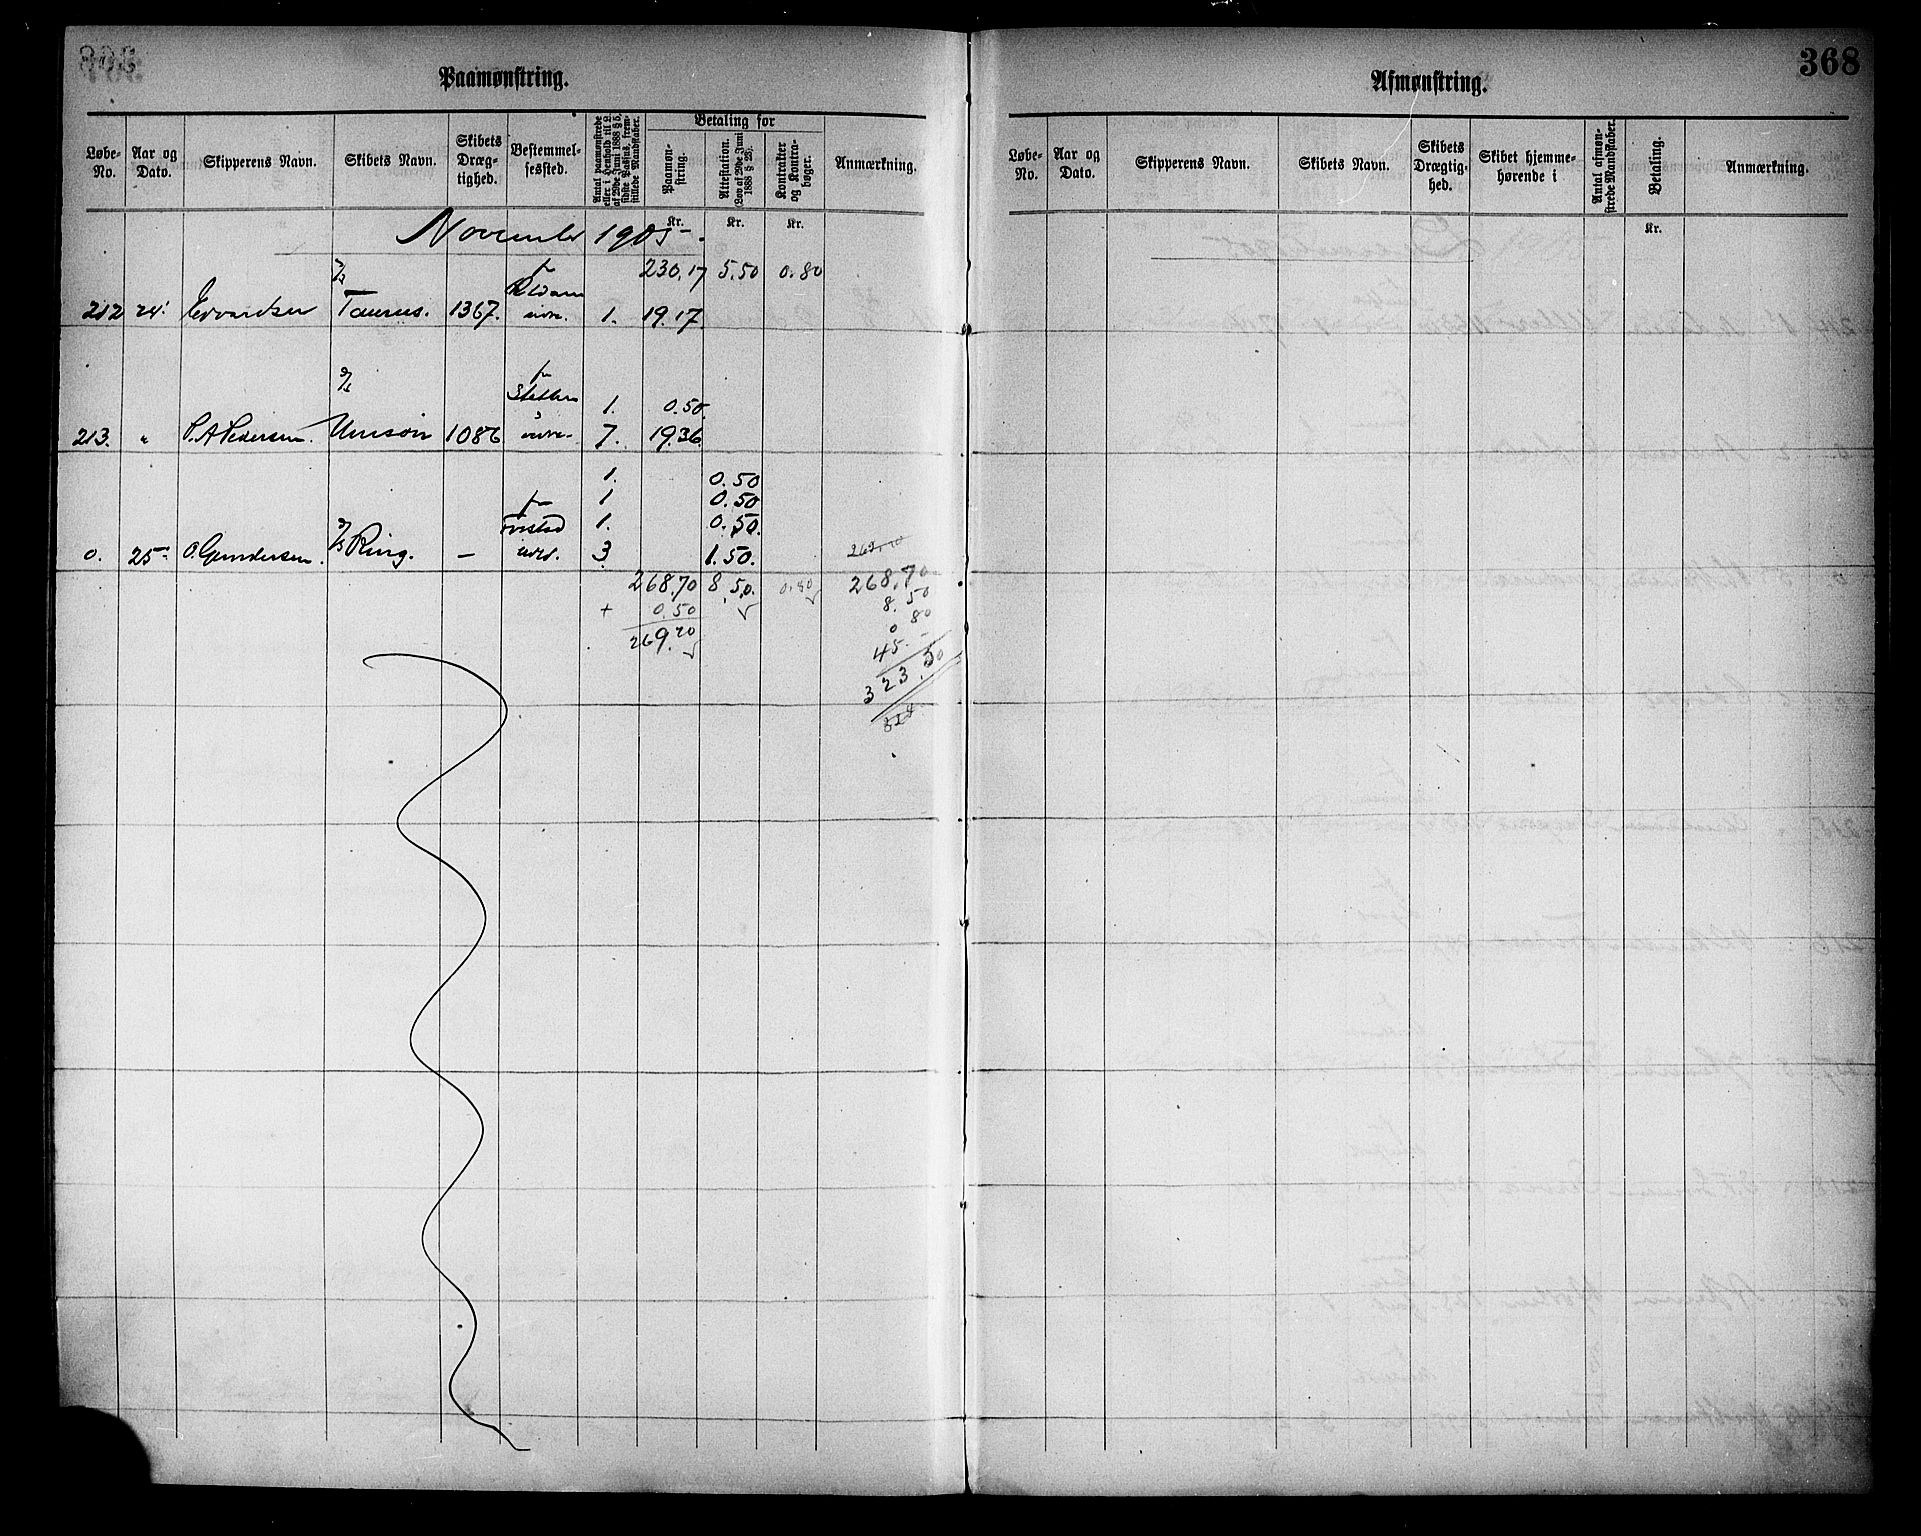 368
Paamønstring.
Løbe-No.
Aar og Dato.
Skipperens Navn.
Skibets Navn.
Skibets Dræg-tighed.
Bestemmel-sessted.
Antal paamønstrede eller i Henhold til L. af 29de Juni 1888 § 5, sidste Passus, frem-stillede Mandskaber.
Betaling for
Paamøn-string.
Attestation. (Lov af 29de Juni 1888 § 25).
Kontrakter og Kontra-bøger.
Anmærkning.
Kr. Kr. Kr.
November 1905.
230.17 5.50 0.80
212 24' Edvardsen Taurus. 1367. 1. 19.17
1. 0.50.
213. " P.A Pedersen. Unison 1086 7. 19.36.
1. 0.50
1 0.50
1. 0.50.
0. 25 O. Gundersen. Ring. — 3 1.50.
268.70 8.50. 0.80 268.70
+ 0.50 8.50
269.20 0 80
45.-
323.50
Afmønstring.
368
Løbe-No.
Aar og Dato.
Skipperens Navn.
Skibets Navn.
Skibets Drægtig-hed.
Skibet hjemme-hørende i
Antal afmøn-strede Mandskaber.
Betaling.
Anmærkning.
Kr.